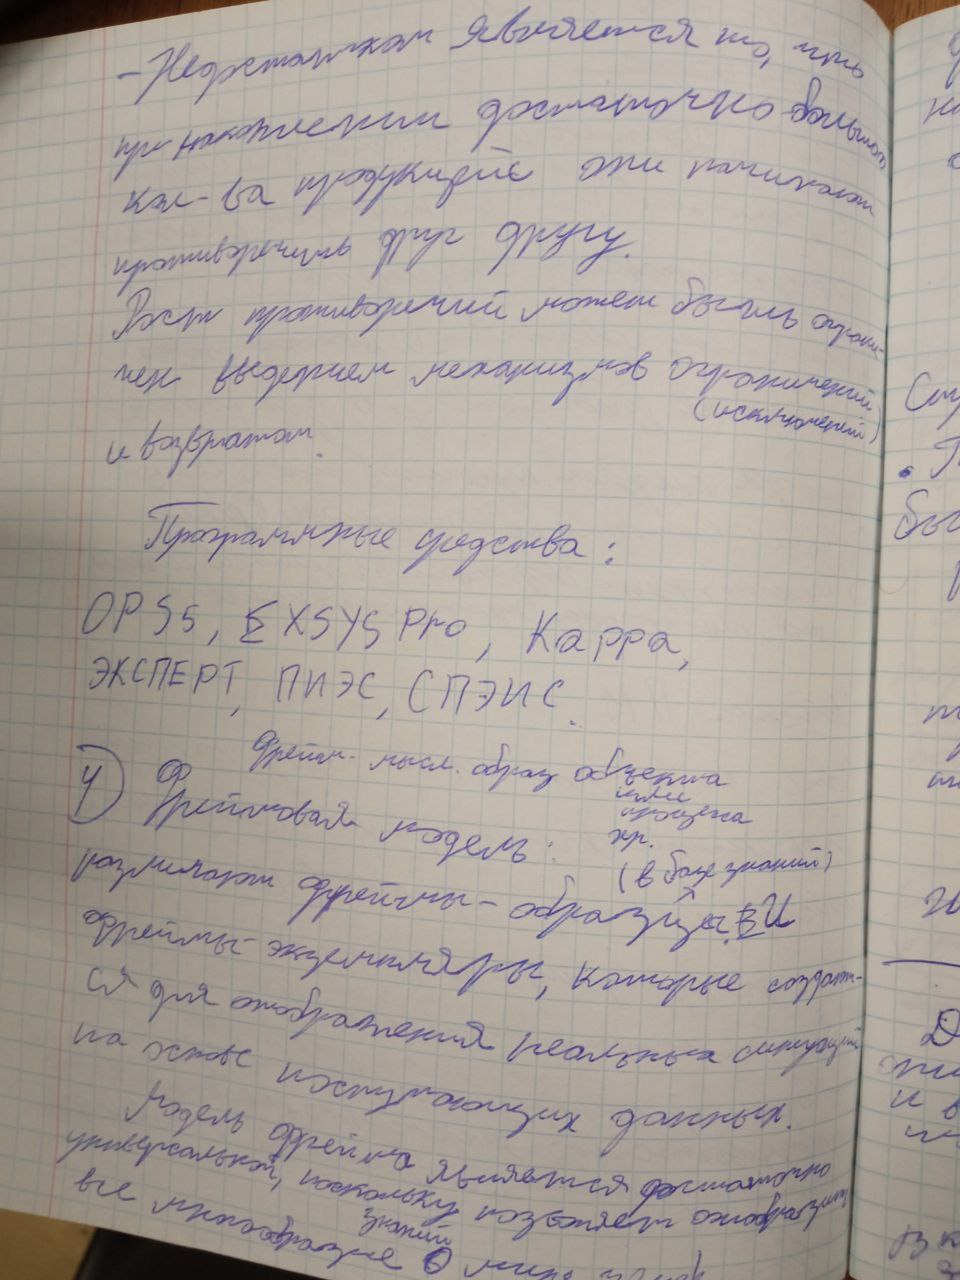 - Недостатком является то, что
при накоплении достаточно большого
кол-ва продукций они начинают
противоречить друг другу.
Рост противоречий может быть ограни-
чен введением механизмов ограничений
(исключений)
и возвратом.
Программные средства:
OPS5, EXSYS Pro, Kappa,
ЭКСПЕРТ, ПИЭС, СПЭИС.
Фрейм - мысл. образ объекта
или
процесса
4) Фреймовая модель:
(в базе знаний)
различают фреймы-образцы и
фреймы-экземпляры, которые создают-
ся для отображения реальных ситуаций
на основе поступающих данных.
Модель фрейма является достаточно
универсальной, поскольку позволяет отобразить
все многообразие знаний о мире